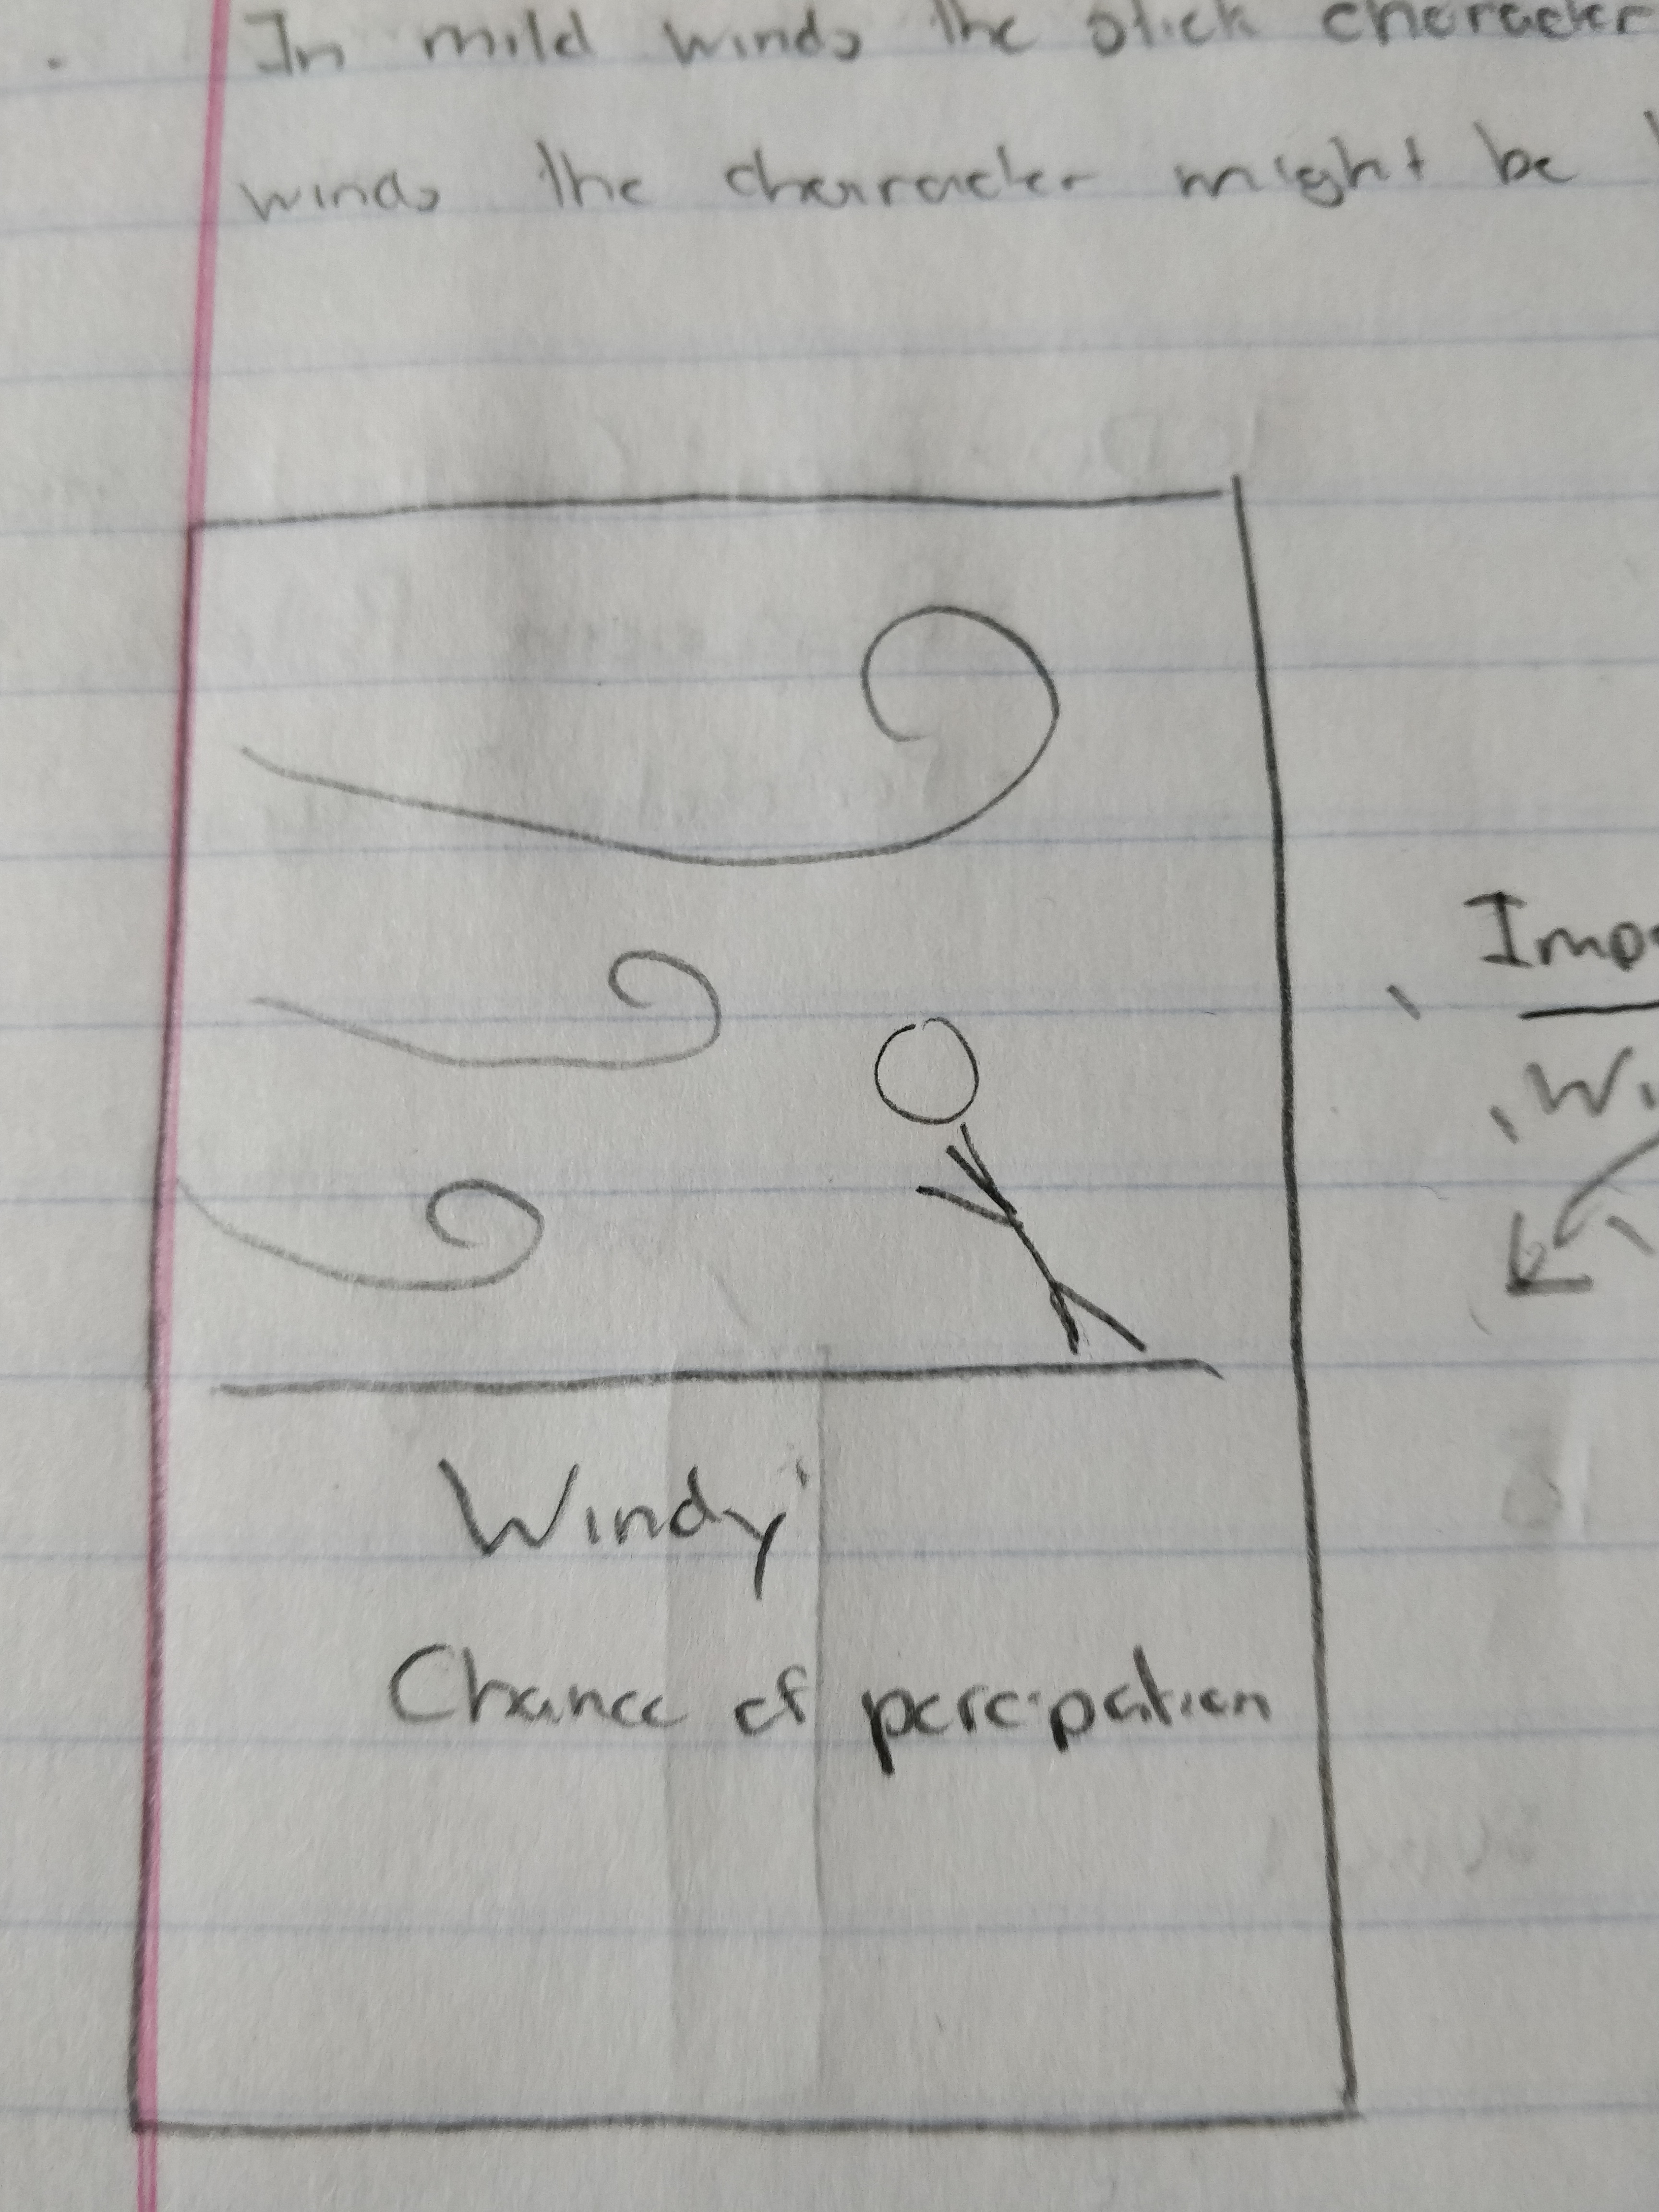 In mild winds the stick character
winds the character might be
Impo
Wi
Windy
Chance of percipation